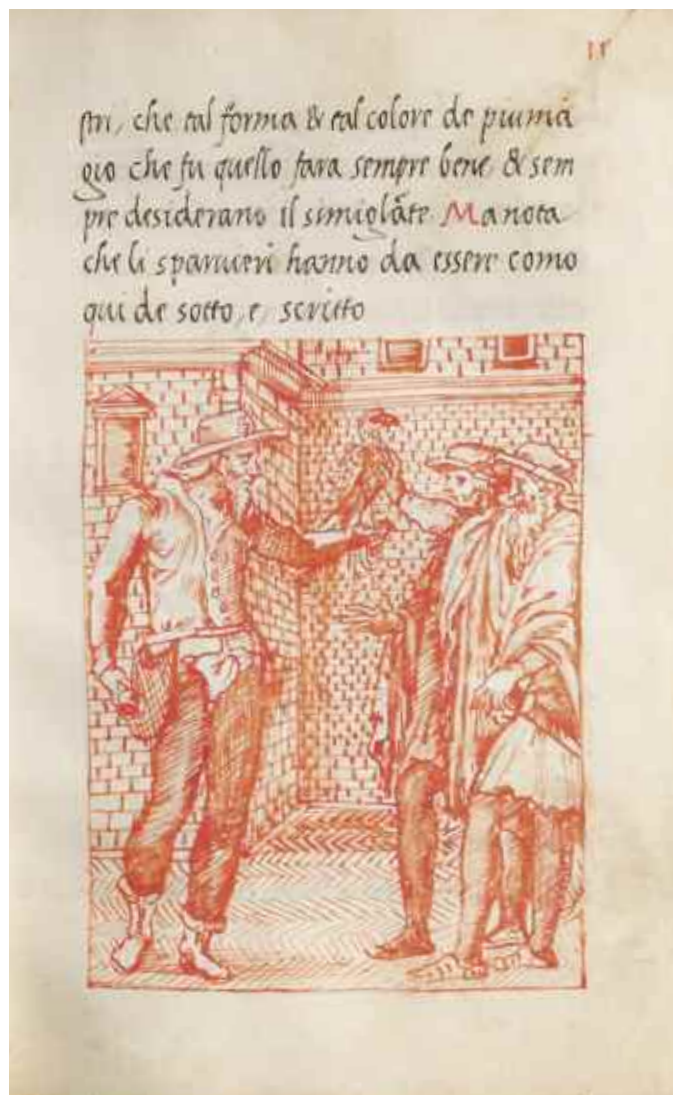 11
stri, che tal forma & tal colore de piuma
gio che fu quello fara sempre bene & sem
pre desiderano il simiglāte Ma nota
che li sparuieri hanno da essere como
qui de sotto, e, scritto